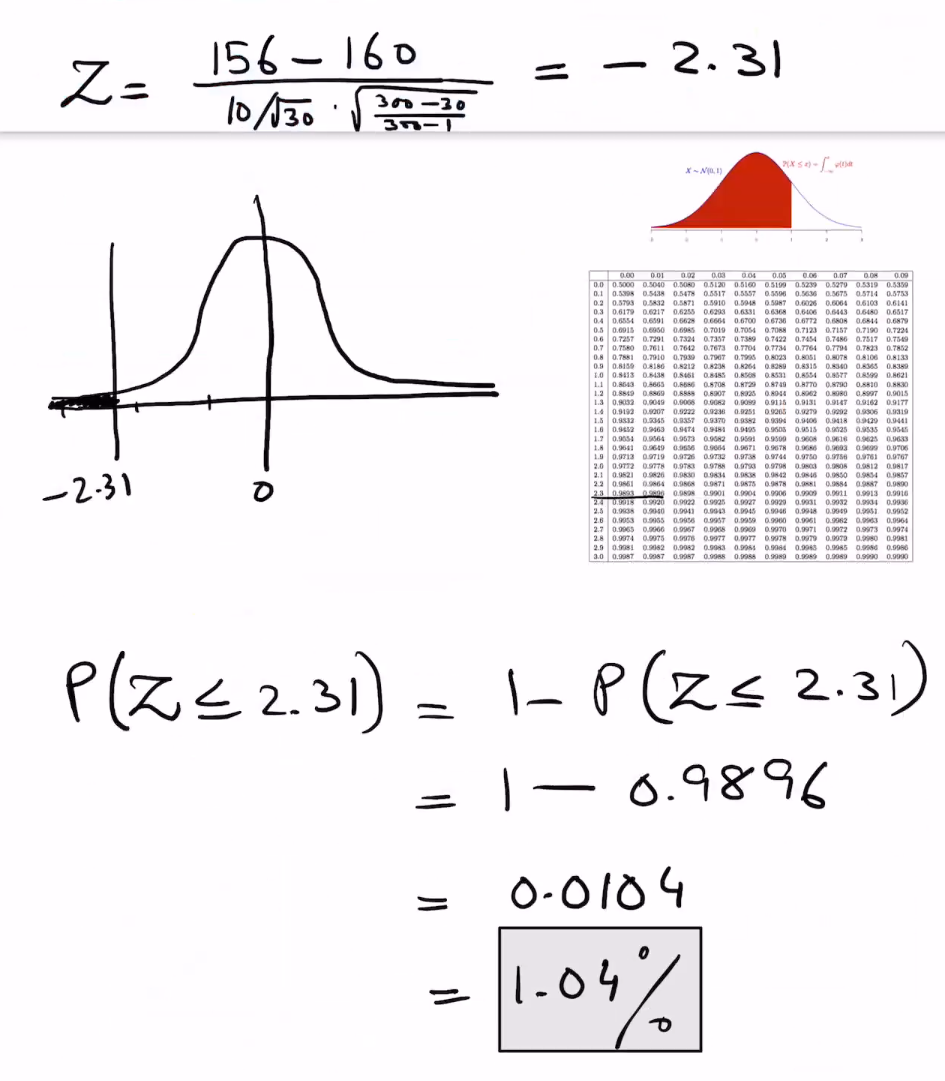 Z = (156 - 160) / (10/√30 · √((300-30)/(300-1))) = - 2.31
X ~ N(0, 1)
-2.31 0
0.00 0.01 0.02 0.03 0.04 0.05 0.06 0.07 0.08 0.09
0.0 0.5000 0.5040 0.5080 0.5120 0.5160 0.5199 0.5239 0.5279 0.5319 0.5359
0.1 0.5398 0.5438 0.5478 0.5517 0.5557 0.5596 0.5636 0.5675 0.5714 0.5753
0.2 0.5793 0.5832 0.5871 0.5910 0.5948 0.5987 0.6026 0.6064 0.6103 0.6141
0.3 0.6179 0.6217 0.6255 0.6293 0.6331 0.6368 0.6406 0.6443 0.6480 0.6517
0.4 0.6554 0.6591 0.6628 0.6664 0.6700 0.6736 0.6772 0.6808 0.6844 0.6879
0.5 0.6915 0.6950 0.6985 0.7019 0.7054 0.7088 0.7123 0.7157 0.7190 0.7224
0.6 0.7257 0.7291 0.7324 0.7357 0.7389 0.7422 0.7454 0.7486 0.7517 0.7549
0.7 0.7580 0.7611 0.7642 0.7673 0.7704 0.7734 0.7764 0.7794 0.7823 0.7852
0.8 0.7881 0.7910 0.7939 0.7967 0.7995 0.8023 0.8051 0.8078 0.8106 0.8133
0.9 0.8159 0.8186 0.8212 0.8238 0.8264 0.8289 0.8315 0.8340 0.8365 0.8389
1.0 0.8413 0.8438 0.8461 0.8485 0.8508 0.8531 0.8554 0.8577 0.8599 0.8621
1.1 0.8643 0.8665 0.8686 0.8708 0.8729 0.8749 0.8770 0.8790 0.8810 0.8830
1.2 0.8849 0.8869 0.8888 0.8907 0.8925 0.8944 0.8962 0.8980 0.8997 0.9015
1.3 0.9032 0.9049 0.9066 0.9082 0.9099 0.9115 0.9131 0.9147 0.9162 0.9177
1.4 0.9192 0.9207 0.9222 0.9236 0.9251 0.9265 0.9279 0.9292 0.9306 0.9319
1.5 0.9332 0.9345 0.9357 0.9370 0.9382 0.9394 0.9406 0.9418 0.9429 0.9441
1.6 0.9452 0.9463 0.9474 0.9484 0.9495 0.9505 0.9515 0.9525 0.9535 0.9545
1.7 0.9554 0.9564 0.9573 0.9582 0.9591 0.9599 0.9608 0.9616 0.9625 0.9633
1.8 0.9641 0.9649 0.9656 0.9664 0.9671 0.9678 0.9686 0.9693 0.9699 0.9706
1.9 0.9713 0.9719 0.9726 0.9732 0.9738 0.9744 0.9750 0.9756 0.9761 0.9767
2.0 0.9772 0.9778 0.9783 0.9788 0.9793 0.9798 0.9803 0.9808 0.9812 0.9817
2.1 0.9821 0.9826 0.9830 0.9834 0.9838 0.9842 0.9846 0.9850 0.9854 0.9857
2.2 0.9861 0.9864 0.9868 0.9871 0.9875 0.9878 0.9881 0.9884 0.9887 0.9890
2.3 0.9893 0.9896 0.9898 0.9901 0.9904 0.9906 0.9909 0.9911 0.9913 0.9916
2.4 0.9918 0.9920 0.9922 0.9925 0.9927 0.9929 0.9931 0.9932 0.9934 0.9936
2.5 0.9938 0.9940 0.9941 0.9943 0.9945 0.9946 0.9948 0.9949 0.9951 0.9952
2.6 0.9953 0.9955 0.9956 0.9957 0.9959 0.9960 0.9961 0.9962 0.9963 0.9964
2.7 0.9965 0.9966 0.9967 0.9968 0.9969 0.9970 0.9971 0.9972 0.9973 0.9974
2.8 0.9974 0.9975 0.9976 0.9977 0.9977 0.9978 0.9979 0.9979 0.9980 0.9981
2.9 0.9981 0.9982 0.9982 0.9983 0.9984 0.9984 0.9985 0.9985 0.9986 0.9986
3.0 0.9987 0.9987 0.9987 0.9988 0.9988 0.9989 0.9989 0.9989 0.9990 0.9990
P(Z ≤ 2.31) = 1 - P(Z ≤ 2.31)
= 1 - 0.9896
= 0.0104
= 1.04%